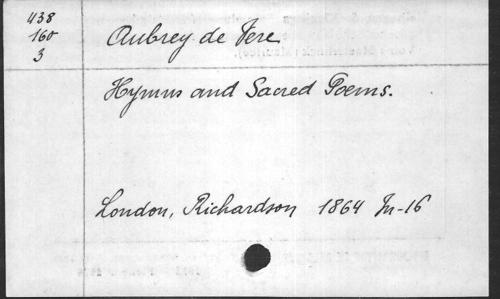 438
160
3
Aubrey de Vere
Hymns and Sacred Poems.
London, Richardson 1864 In-16